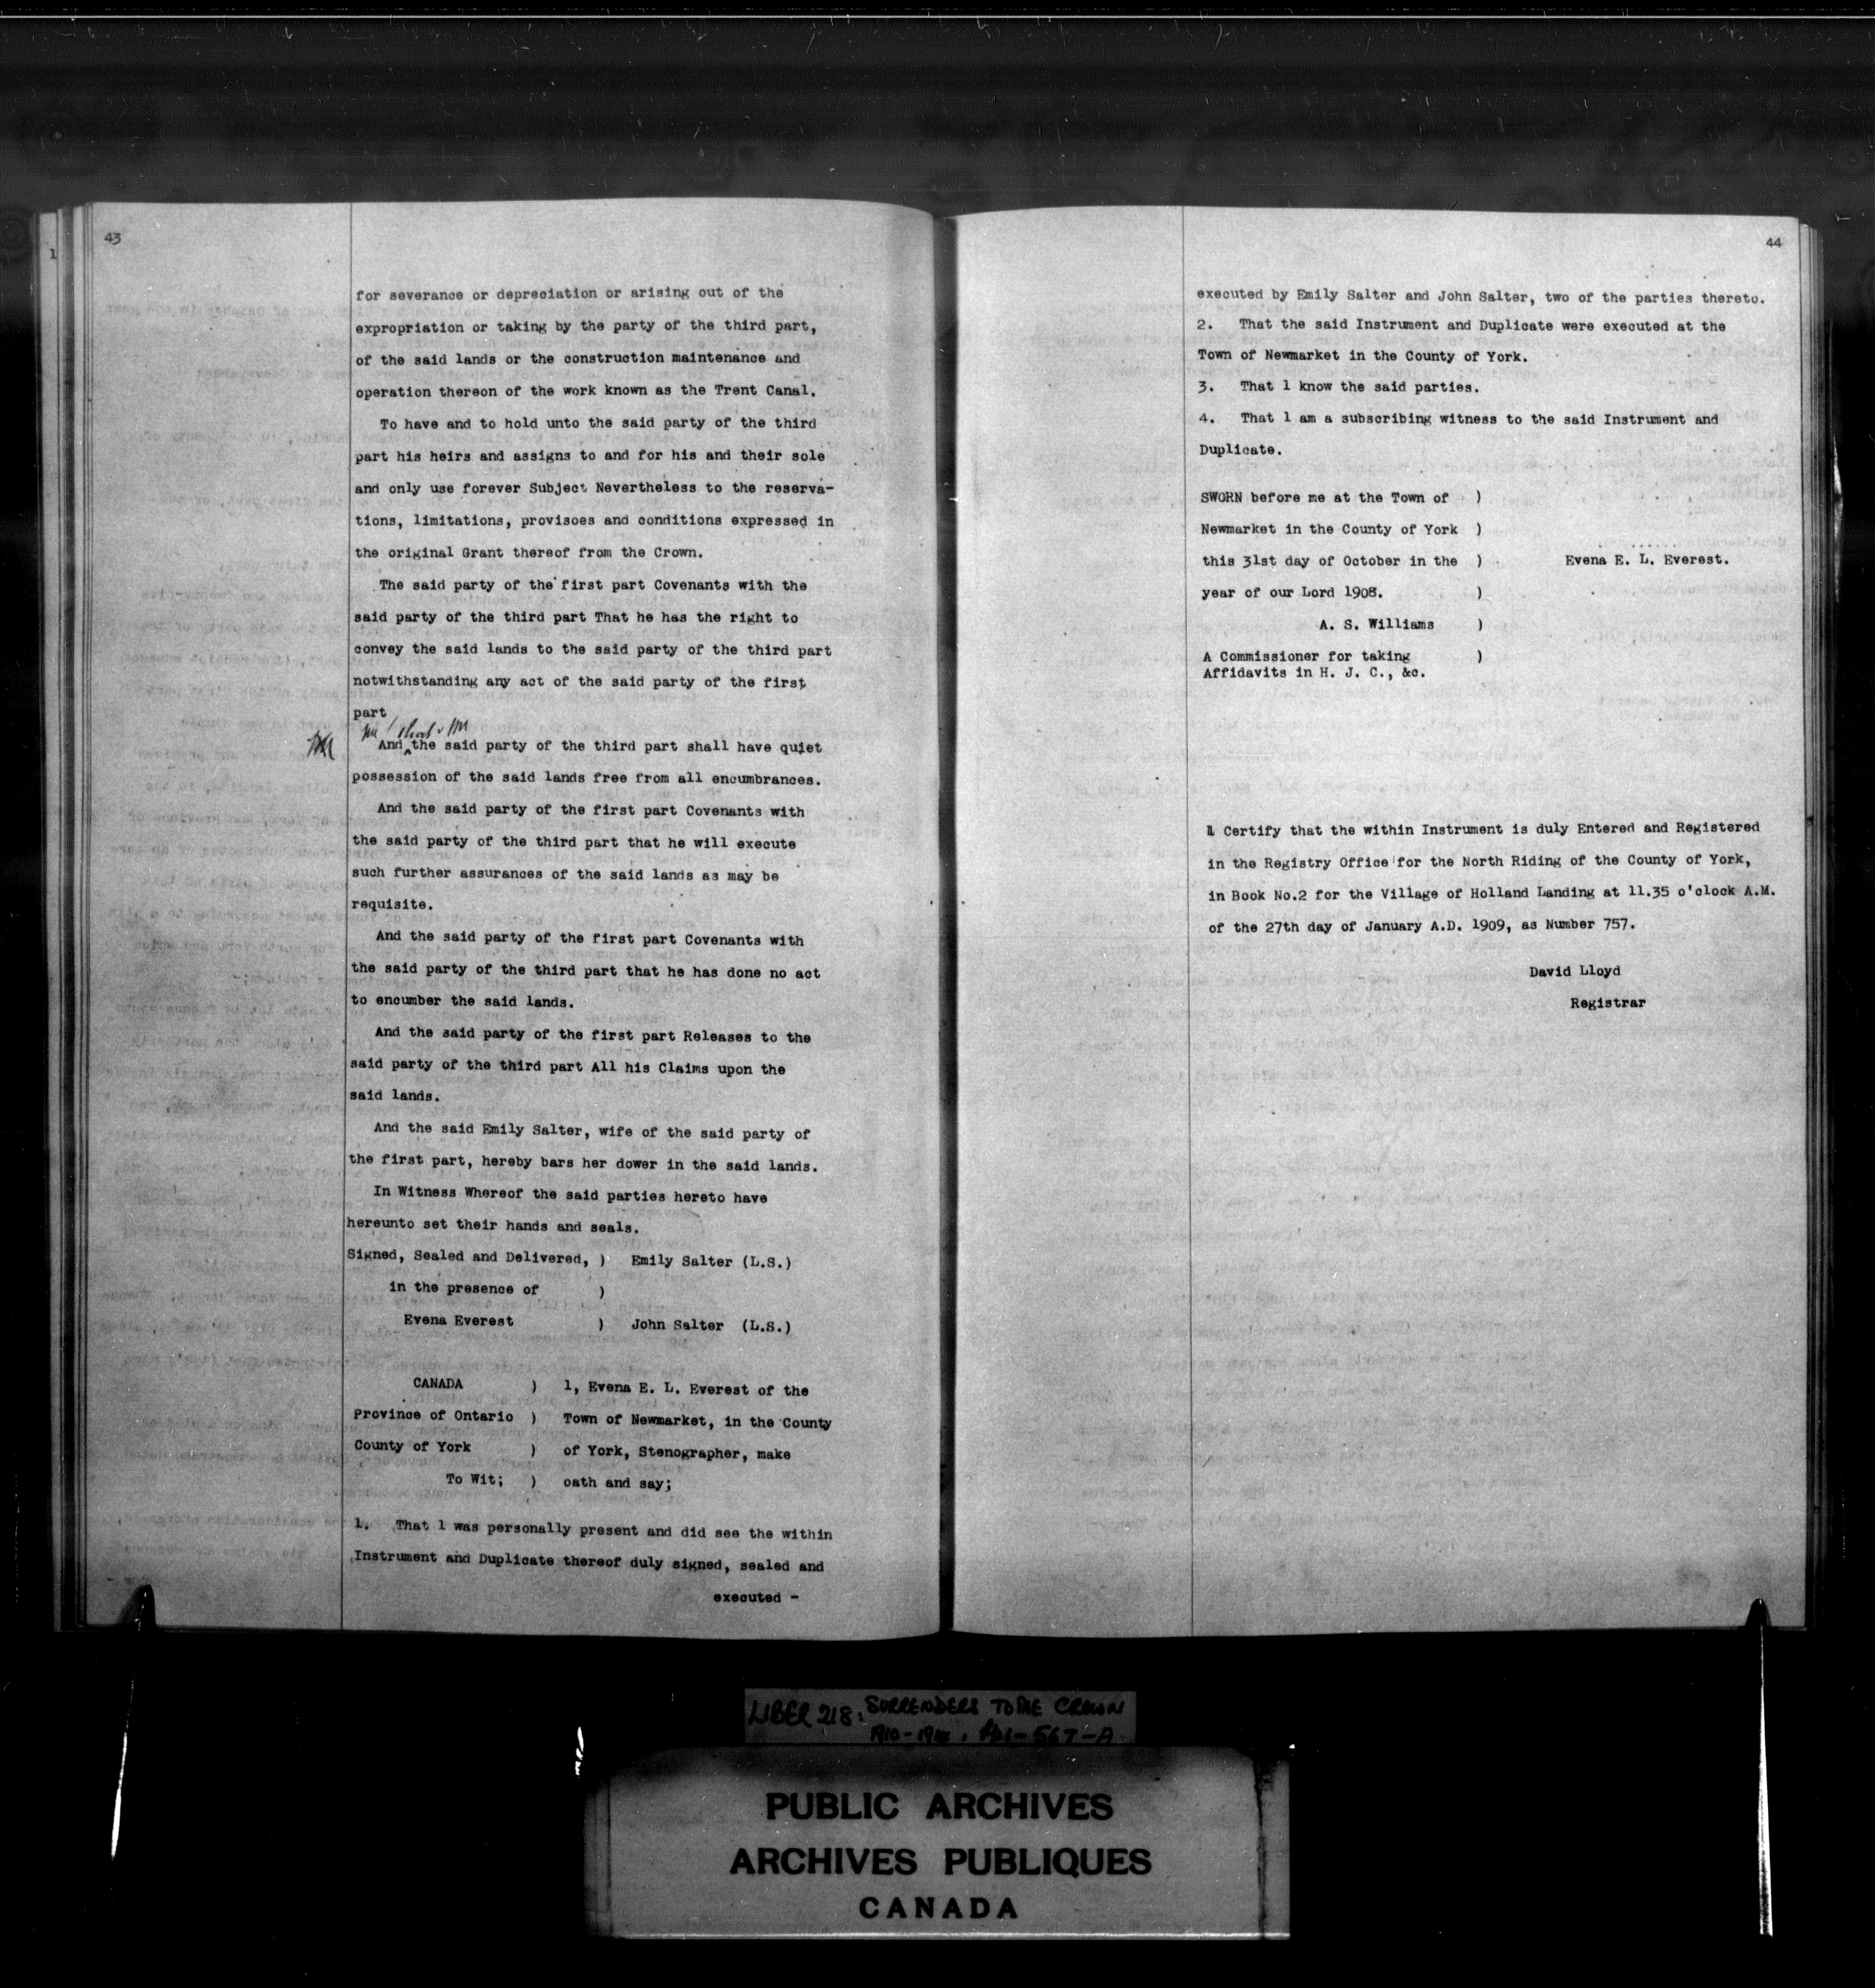 43
for severance or depreciation or arising out of the
expropriation or taking by the party of the third part,
of the said lands or the construction maintenance and
operation thereon of the work known as the Trent Canal.
To have and to hold unto the said party of the third
part his heirs and assigns to and for his and their sole
and only use forever Subject Nevertheless to the reserva-
tions, limitations, provisoes and conditions expressed in
the original Grant thereof from the Crown.
The said party of the first part Covenants with the
said party of the third part That he has the right to
convey the said lands to the said party of the third part
notwithstanding any act of the said party of the first
part
And the said party of the third part shall have quiet
possession of the said lands free from all encumbrances.
And the said party of the first part Covenants with
the said party of the third part that he will execute
such further assurances of the said lands as may be
requisite.
And the said party of the first part Covenants with
the said party of the third part that he has done no act
to encumber the said lands.
And the said party of the first part Releases to the
said party of the third part All his Claims upon the
said lands.
And the said Emily Salter, wife of the said party of
the first part, hereby bars her dower in the said lands.
In Witness Whereof the said parties hereto have
hereunto set their hands and seals.
Signed, Sealed and Delivered, ) Emily Salter (L.S.)
in the presence of )
Evena Everest ) John Salter (L.S.)
CANADA ) 1, Evena E. L. Everest of the
Province of Ontario ) Town of Newmarket, in the County
County of York ) of York, Stenographer, make
To Wit; ) oath and say;
1. That 1 was personally present and did see the within
Instrument and Duplicate thereof duly signed, sealed and
executed -
44
executed by Emily Salter and John Salter, two of the parties thereto.
2. That the said Instrument and Duplicate were executed at the
Town of Newmarket in the County of York.
3. That 1 know the said parties.
4. That 1 am a subscribing witness to the said Instrument and
Duplicate.
SWORN before me at the Town of )
Newmarket in the County of York )
this 31st day of October in the ) Evena E. L. Everest.
year of our Lord 1908. )
A. S. Williams )
A Commissioner for taking )
Affidavits in H. J. C., &c.
1 Certify that the within Instrument is duly Entered and Registered
in the Registry Office for the North Riding of the County of York,
in Book No.2 for the Village of Holland Landing at 11.35 o'clock A.M.
of the 27th day of January A.D. 1909, as Number 757.
David Lloyd
Registrar
LIBER 218: SURRENDERS TO THE CROWN
PUBLIC ARCHIVES
ARCHIVES PUBLIQUES
CANADA